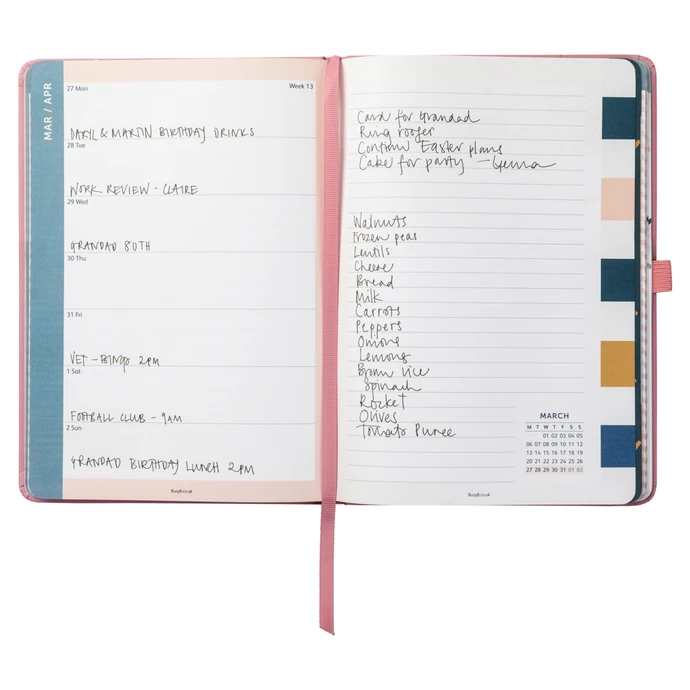 MAR / APR
27 Mon Week 13
DARYL & MARTIN BIRTHDAY DRINKS
28 Tue
WORK REVIEW - CLAIRE
29 Wed
GRANDAD 80TH
30 Thu
31 Fri
VET - BINGO 2PM
1 Sat
FOOTBALL CLUB - 9AM
2 Sun
GRANDAD BIRTHDAY LUNCH 2PM
BusyB.co.uk
Card for Grandad
Ring roofer
Confirm Easter plans
Cake for party - Gemma
Walnuts
Frozen peas
Lentils
Cheese
Bread
Milk
Carrots
Peppers
Onions
Lemons
Brown rice
Spinach
Rocket
Olives
Tomato Puree
MARCH
M T W T F S S
01 02 03 04 05
06 07 08 09 10 11 12
13 14 15 16 17 18 19
20 21 22 23 24 25 26
27 28 29 30 31 01 02
BusyB.co.uk